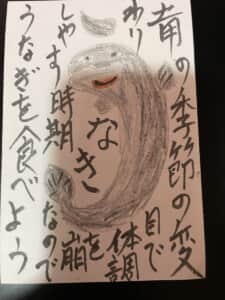 の季節の変
わり
目で
体調
を崩
しやす時期なので
うなぎを食べよう
なき